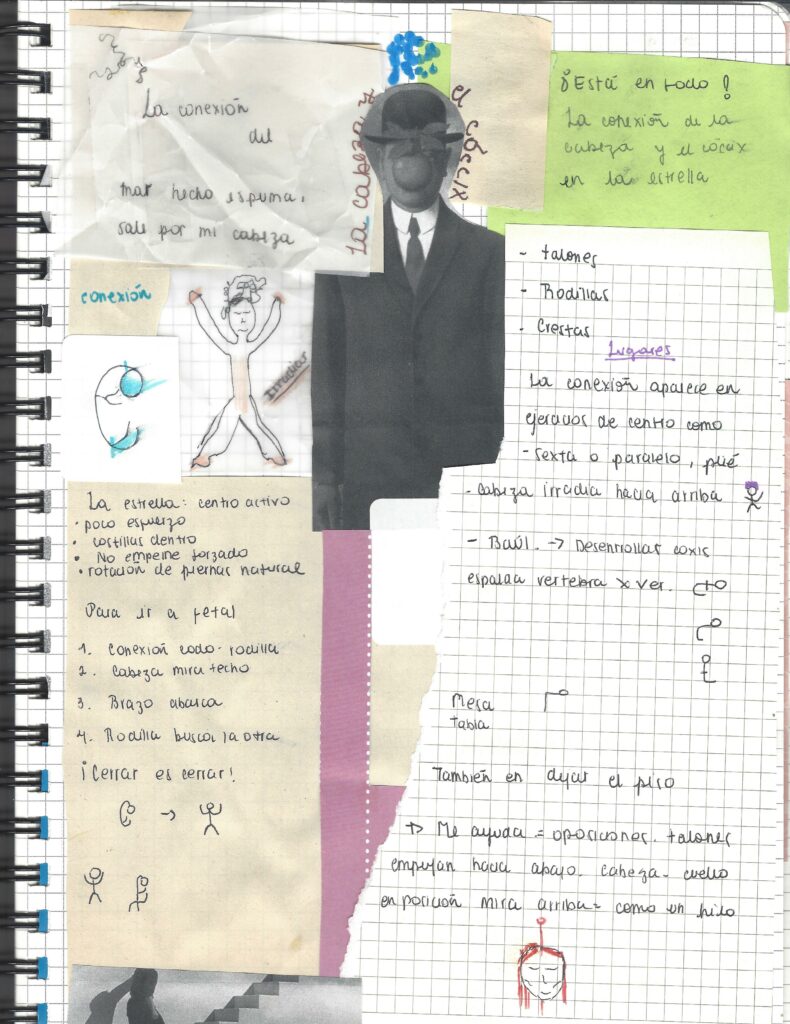 La conexión
del
mar hecho espuma,
sale por mi cabeza
La cabeza y
el cóccix
¡Está en todo!
La conexión de la
cabeza y el cóccix
en la estrella
conexión
Irradiar
- talones
- Rodillas
- Crestas
Lugares
La conexión aparece en
ejercicios de centro como
- sexta o paralelo, plié
- cabeza irradia hacia arriba
- Baúl. → Desenrollar coxis
espalda vertebra x ver.
Mesa
tabla
También en dejar el piso
→ Me ayuda = oposiciones. talones
empujan hacia abajo. cabeza - cuello
en posición mira arriba = como un hilo
La estrella: centro activo
• poco esfuerzo
• costillas dentro
• No empeine forzado
• rotación de piernas natural
Para ir a fetal
1. Conexión codo - rodilla
2. Cabeza mira techo
3. Brazo abarca
4. Rodilla busca la otra
¡Cerrar es cerrar!